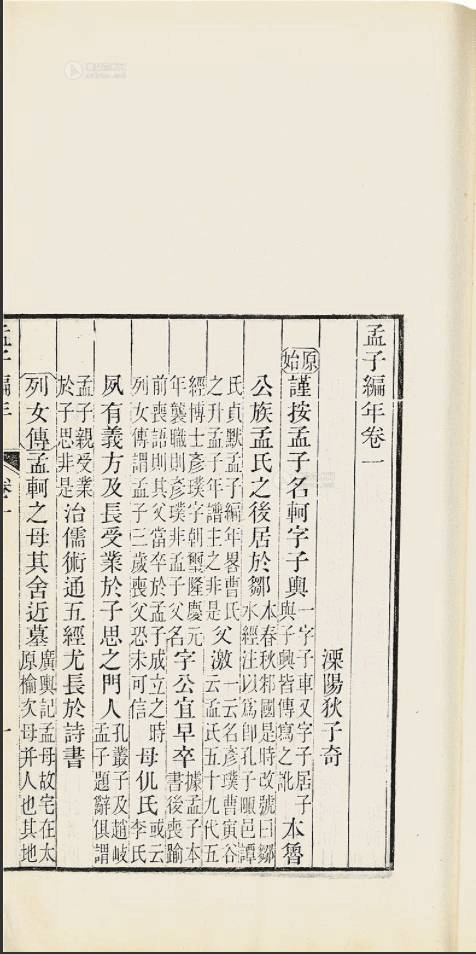 孟子編年卷一
溧陽狄子奇
原始謹按孟子名軻字子輿一字子車又字子居子與子興皆傳寫之訛本魯
公族孟氏之後居於鄒本春秋邾國是時改號曰鄒水經注以爲即孔子陬邑譚
氏貞默孟子編年畧曹氏之升孟子年譜主之非是父激一云名彥璞曹寅谷云孟氏五十九代五
經博士彥璞字朝璽隆慶元年襲職則彥璞非孟子父名字公宜早卒據孟子本書後喪踰
前喪語則其父當卒於孟子成立之時列女傳謂孟子三歲喪父恐未可信母仉氏或云李氏
夙有義方及長受業於子思之門人孔叢子及趙岐孟子題辭俱謂
孟子親受業於子思非是治儒術通五經尤長於詩書
列女傳孟軻之母其舍近墓廣輿記孟母故宅在太原榆次母并人也其地
孟子編年 卷一 一